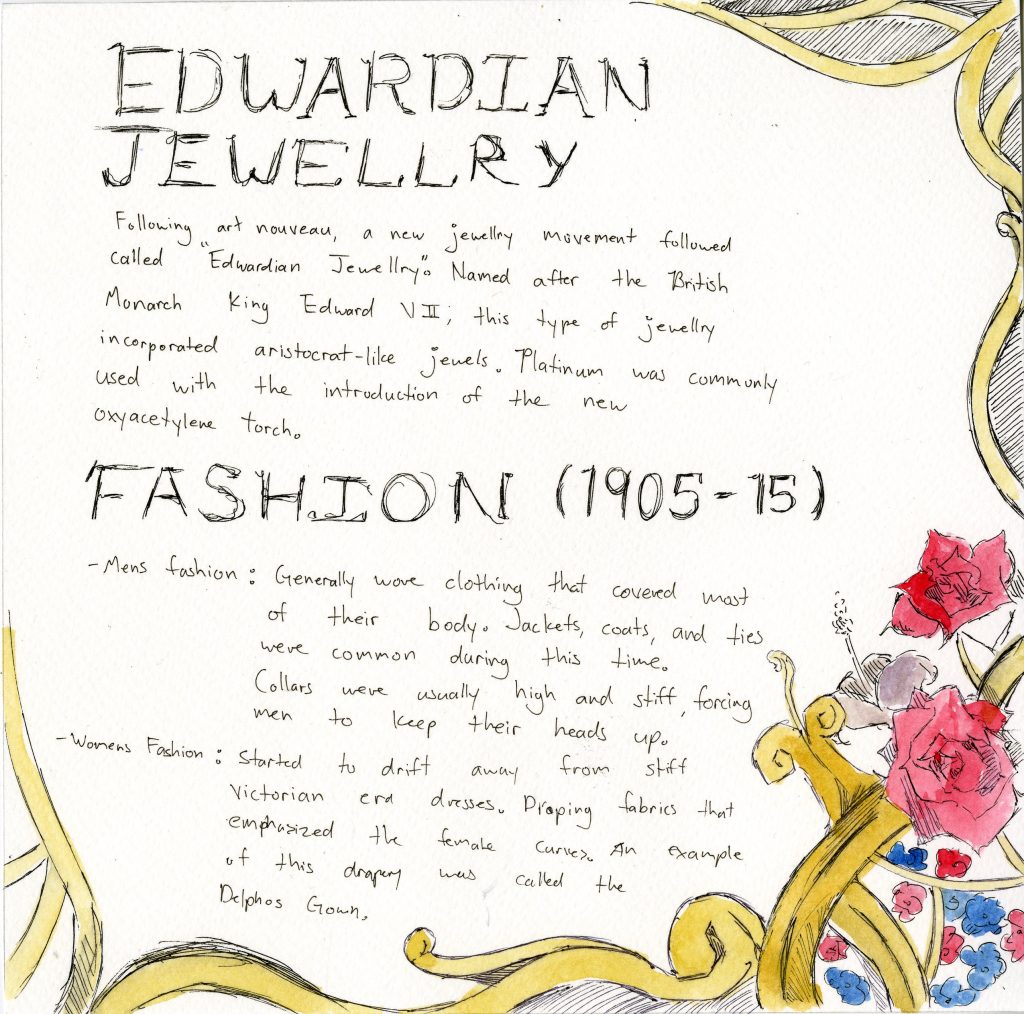 EDWARDIAN
JEWELLRY
Following art nouveau, a new jewellry movement followed
called "Edwardian Jewellry". Named after the British
Monarch King Edward VII; this type of jewellry
incorporated aristocrat-like jewels. Platinum was commonly
used with the introduction of the new
oxyacetylene torch.
FASHION (1905-15)
-Mens fashion: Generally wore clothing that covered most
of their body. Jackets, coats, and ties
were common during this time.
Collars were usually high and stiff, forcing
men to keep their heads up.
-Womens Fashion: Started to drift away from stiff
Victorian era dresses. Draping fabrics that
emphasized the female curves. An example
of this drapery was called the
Delphos Gown.